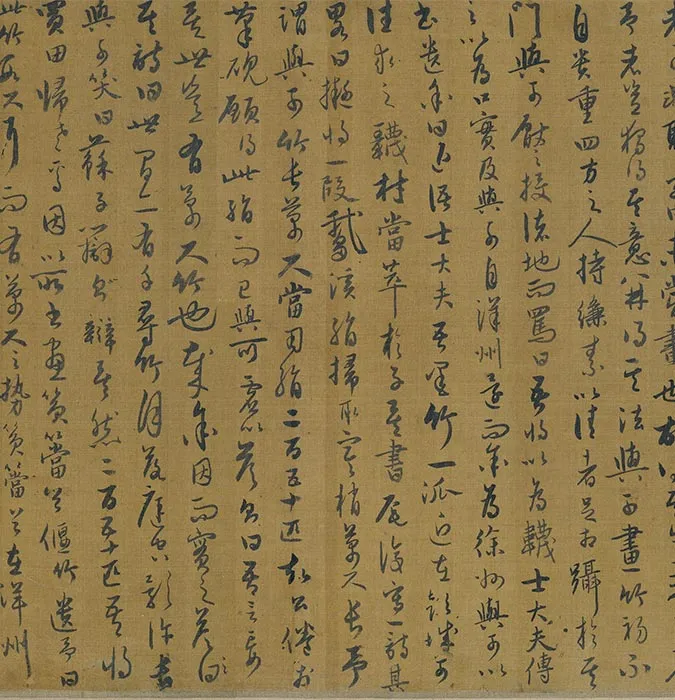 未嘗畫也故
予者豈獨得其意并得其法與可畫竹初不
自貴重四方之人持縑素以請者足相躡於其
門與可厭之投諸地而罵曰吾將以為韈士大夫傳
之以為口實及與可自洋州還而余為徐州與可以
書遺余曰近語士大夫吾墨竹一派近在彭城可
往求之韈材當萃於子矣書尾復寫一詩其
略曰擬將一段鵝溪絹掃取寒梢萬尺長予
謂與可竹長萬尺當用絹二百五十匹知公倦於
筆硯願得此絹而已與可無以答則曰吾言妄
矣世豈有萬尺竹也哉余因而實之答
其詩曰世間亦有千尋竹月落庭空影許長
與可笑曰蘇子辯則辯矣然二百五十匹吾將
買田歸老焉因以所畫篔簹谷偃竹遺予曰
此竹數尺耳而有萬尺之勢篔簹谷在洋州